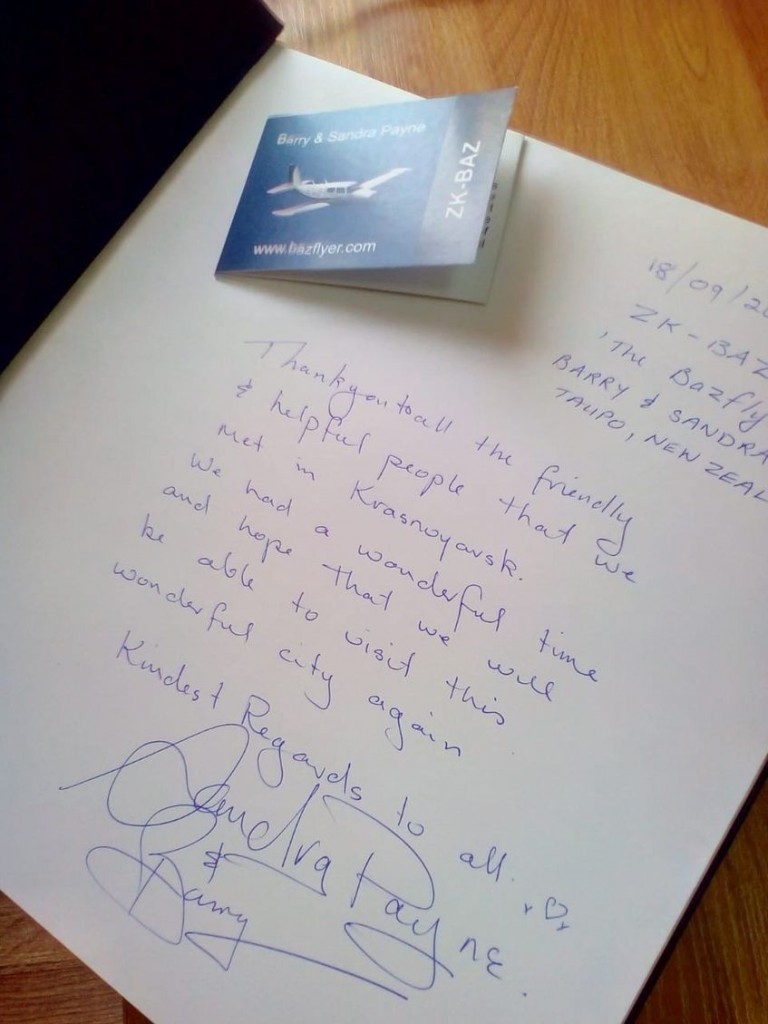 Barry & Sandra Payne
ZK-BAZ
www.bazflyer.com
18/09/20
ZK-BAZ
'The Bazfly
BARRY & SANDRA
TAUPO, NEW ZEAL
Thankyou to all the friendly
& helpful people that we
met in Krasnoyarsk.
We had a wonderful time
and hope that we will
be able to visit this
wonderful city again
Kindest Regards to all. x♡x
Sandra Payne.
& Barry